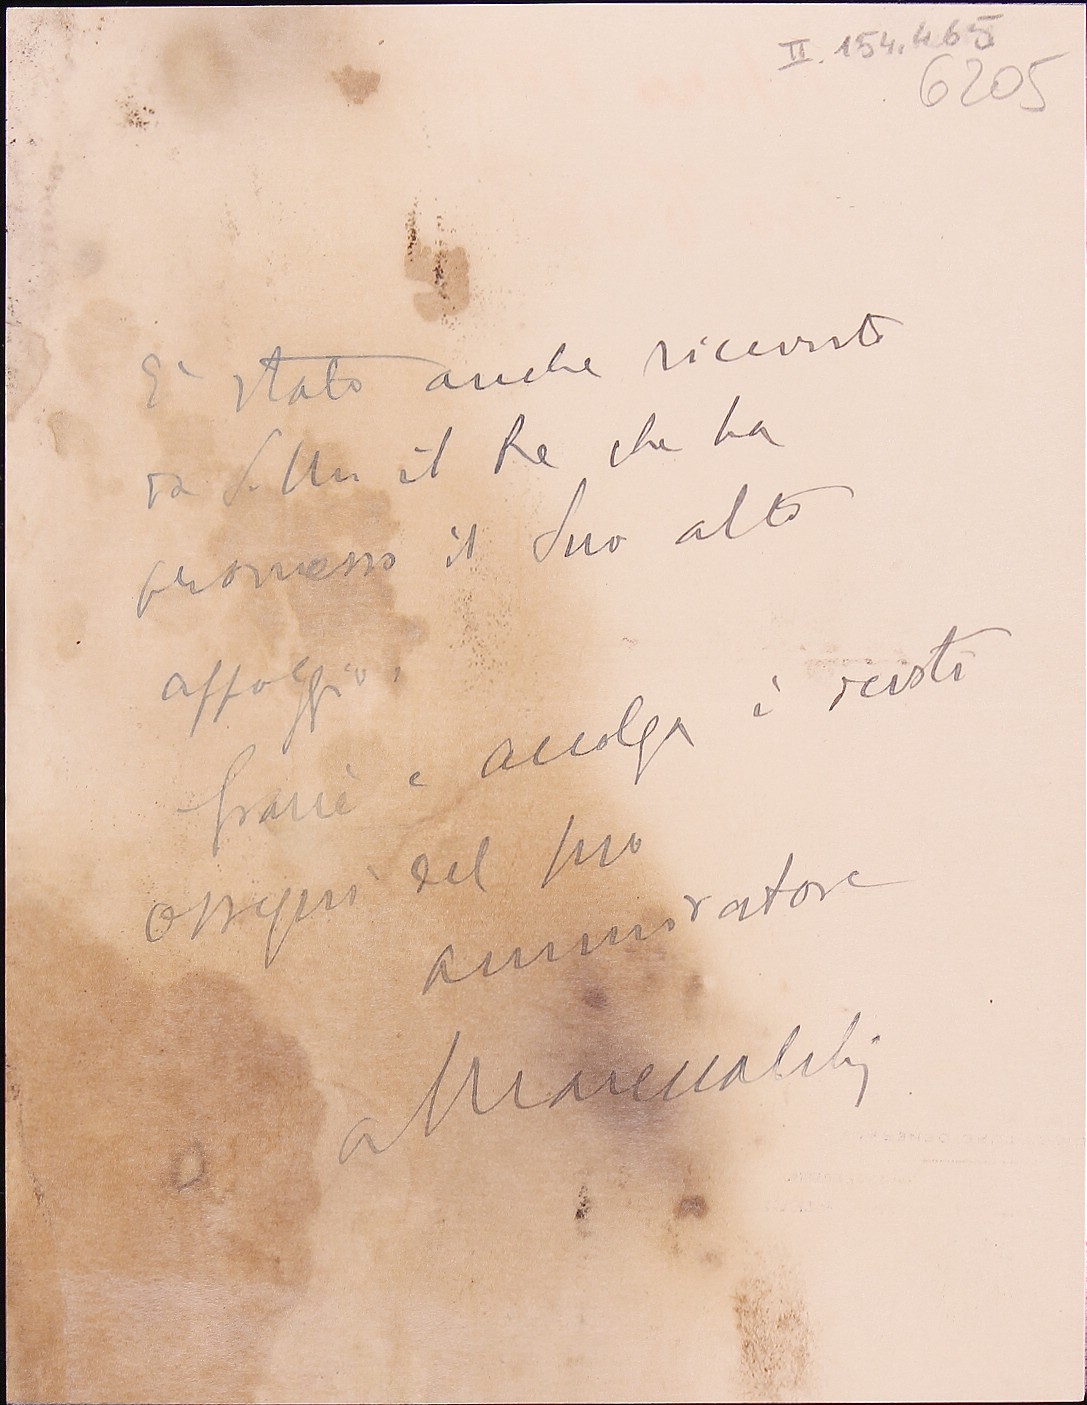 II. 154.465
6205
E' stato anche ricevuto
da S. M. il Re che ha
promesso il Suo alto
appoggio.
Grazie e accolga i devoti
ossequi del suo
ammiratore